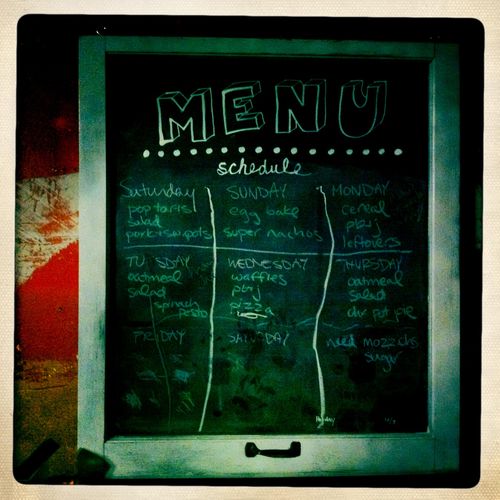 MENU
schedule
Saturday
poptarts
salad
pork & swt pots
SUNDAY
egg bake
super nachos
MONDAY
cereal
pb+j
leftovers
TUESDAY
oatmeal
salad
spinach
pesto
WEDNESDAY
waffles
pb+j
pizza
THURSDAY
oatmeal
salad
chx pot pie
FRIDAY
SATURDAY
need mozz chs
sugar